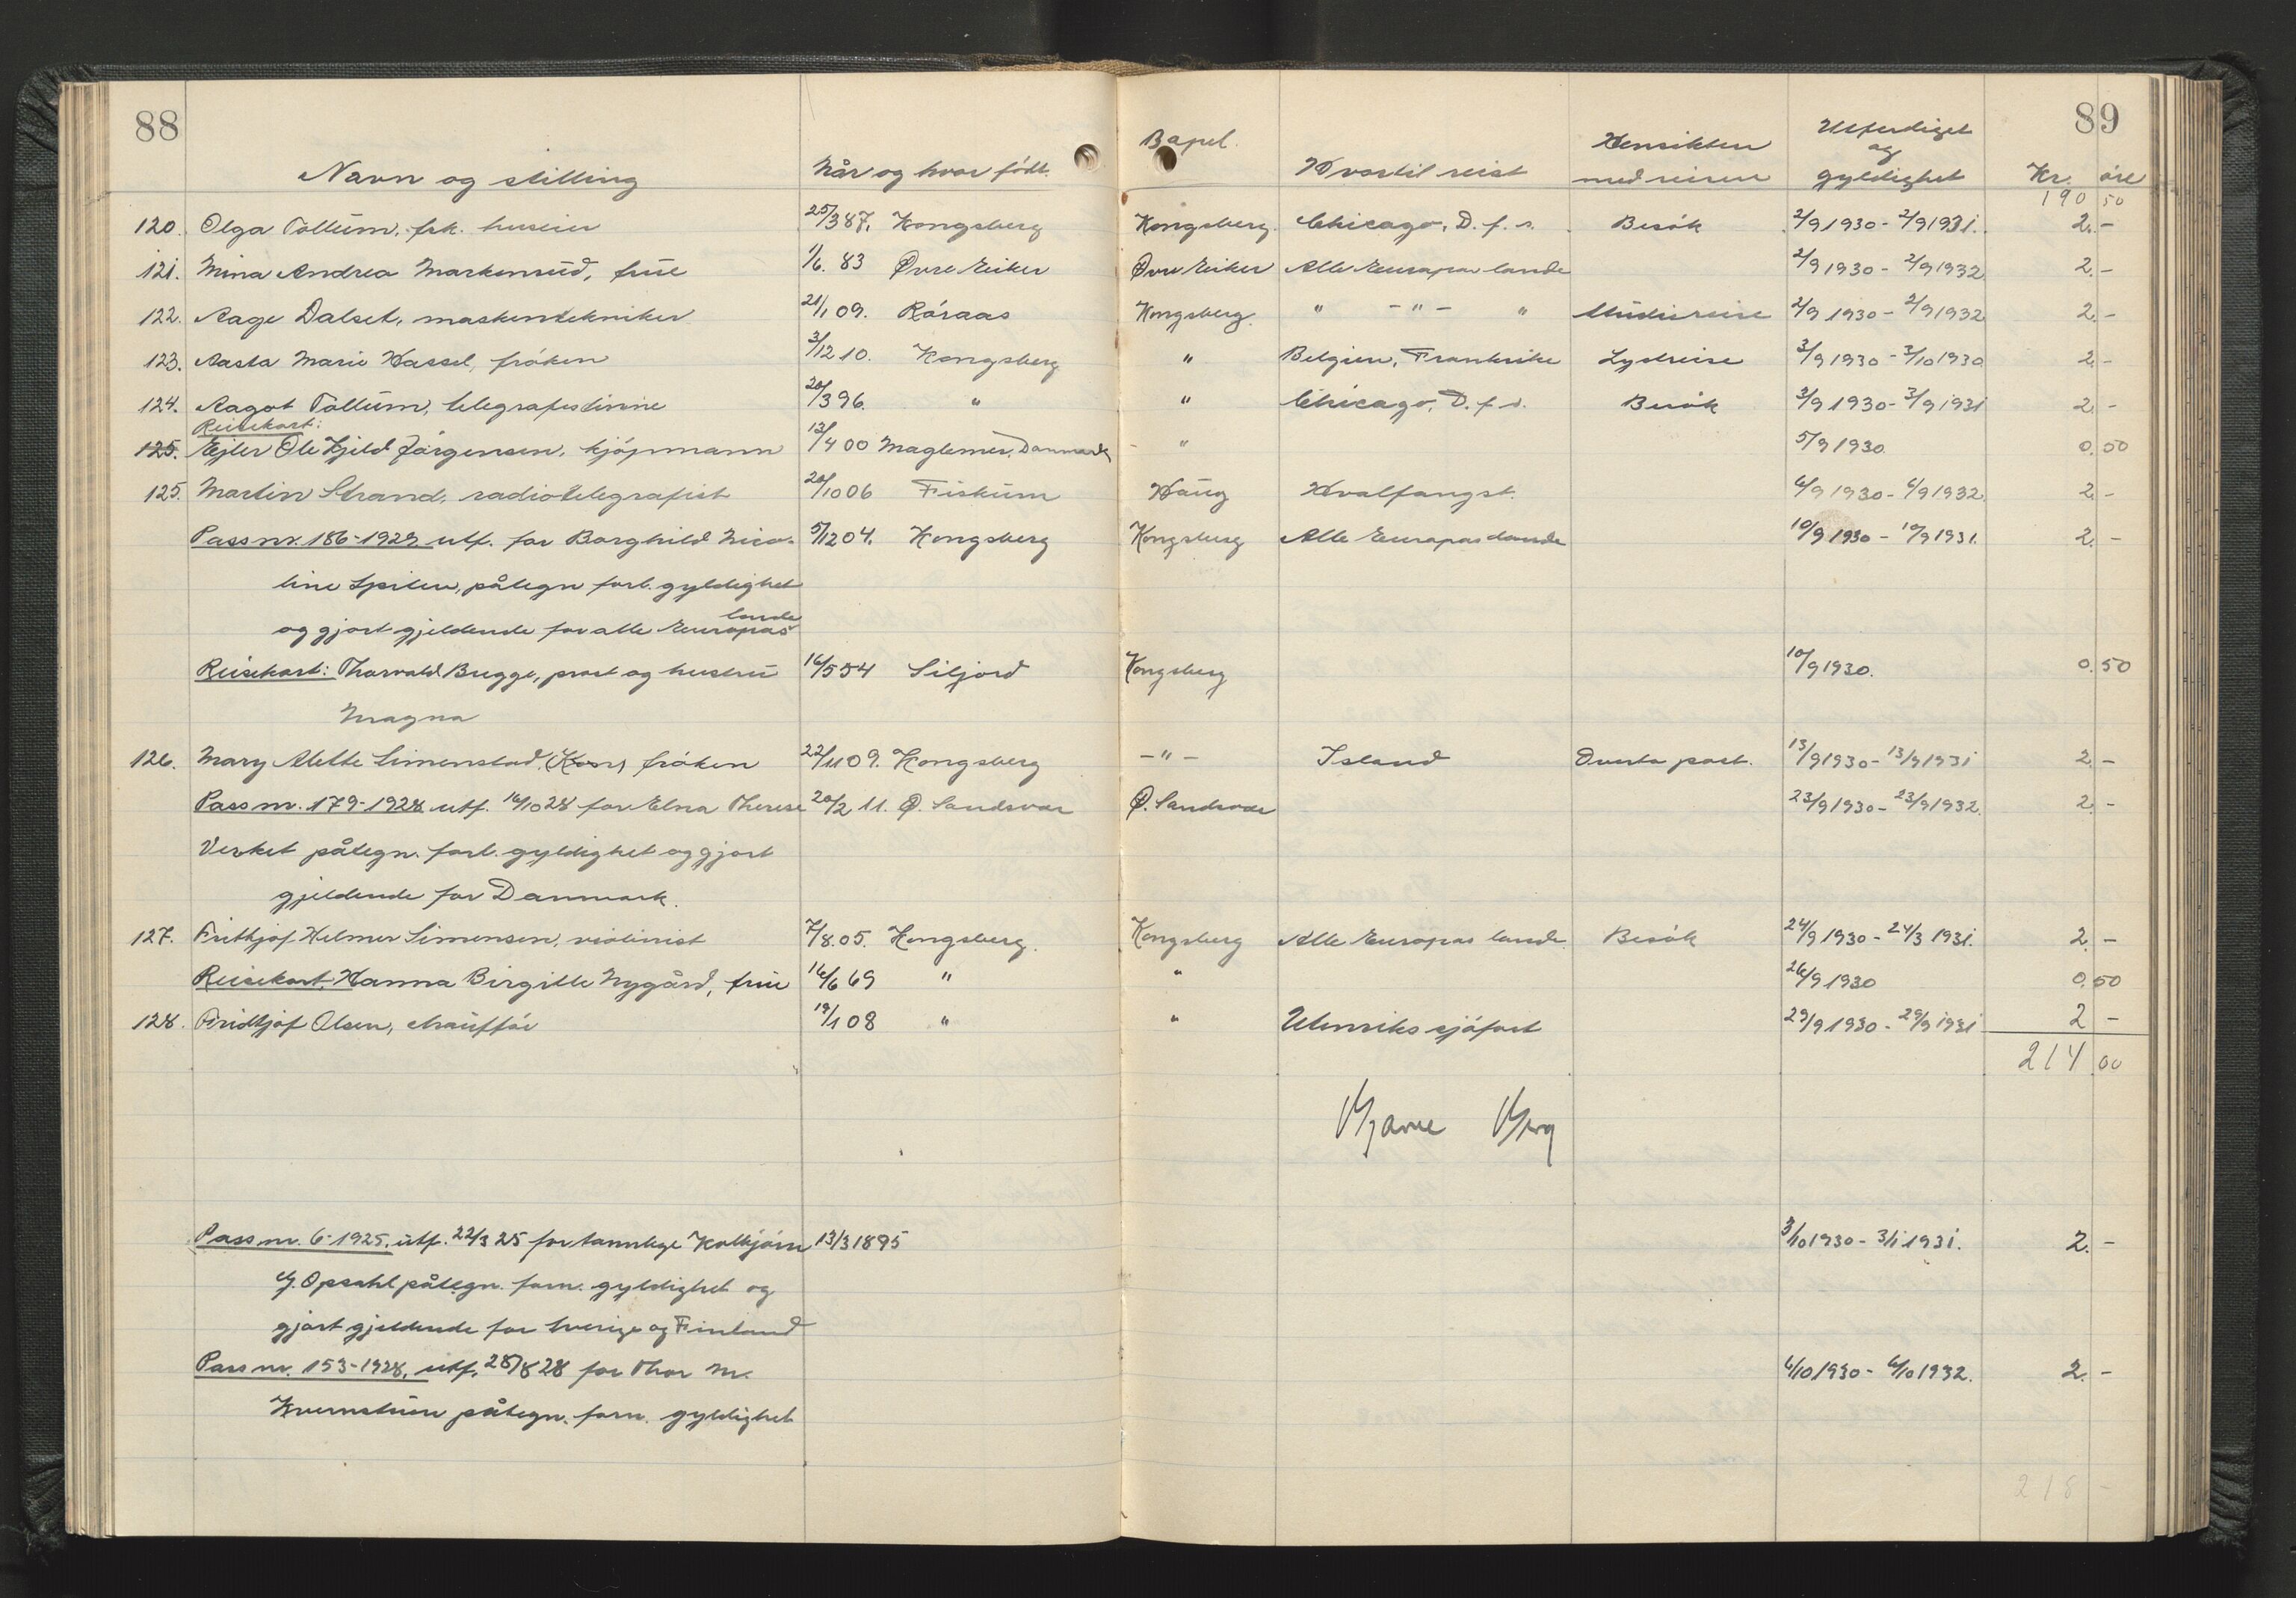 88
89
Navn og stilling Når og hvor födt. Bopel. Hvortil reist Hensikten med reisen Utferdiget og gyldighet Kr. öre
190 50
120. Olga Tollum, frk. huseier 25/3 87. Kongsberg Kongsberg. Chicago, D. f. s. Besök 2/9 1930 - 2/9 1931. 2.-
121. Mina Andrea Markenrud, frue 1/6. 83 Övre Eiker Övre Eiker Alle Europas lande 2/9 1930 - 2/9 1932 2.-
122. Aage Dalset, maskintekniker 21/1 09. Röraas Kongsberg. " -"- " Studiereise 2/9 1930 - 2/9 1932 2.-
123. Aasta Marie Hassel, fröken 3/12 10. Kongsberg " Belgien, Frankrike Lystreise 3/9 1930 - 3/10 1930 2.-
124. Aagot Tollum, telegrafistinne 20/3 96. " " Chicago, D. f. s. Besök 3/9 1930 - 3/9 1931 2.-
Reisekort:
125. Ejler Ole Kjeld Jörgensen, kjöpmann 12/4 00 Maglemer, Danmark - " 5/9 1930. 0.50
125. Martin Strand, radiotelegrafist 20/10 06 Fiskum Haug Hvalfangst. 6/9 1930 - 6/9 1932. 2.-
Pass nr. 186-1929 utf. for Borghild Nico- 5/12 04. Kongsberg Kongsberg Alle Europas lande 10/9 1930 - 10/9 1931. 2.-
line Spiten, påtegn forl. gyldighet
lande
og gjort gjeldende for alle Europas
Reisekort: Thorvald Bugge, prost og hustru 16/5 54 Siljord Kongsberg 10/9 1930. 0.50
Magna
126. Mary Alette Simenstad, (Kon) fröken 22/11 09. Kongsberg -"- Island Overta post. 13/9 1930 - 13/9 1931 2.-
Pass nr. 179-1928 utf. 16/10 28 for Elna Therese 20/2 11. Ö. Sandsvær Ö. Sandsvær 23/9 1930 - 23/9 1932. 2.-
Verket påtegn. forl. gyldighet og gjort
gjeldende for Danmark.
127. Frithjof Helmer Simensen, violinist 7/8. 05. Kongsberg. Kongsberg Alle Europas lande. Besök 24/9 1930 - 24/3 1931. 2.-
Reisekort. Hanna Birgitte Nygård, frue 16/6 69 " " 26/9 1930 0.50
128. Fridtjof Olsen, chaufför 19/1 08 " " Utenriks sjöfart 29/9 1930 - 29/9 1931 2 -
214 00
Bjarne Berg
Pass nr. 6-1925. utf. 22/3 25 for tannlege Kolbjörn 13/3 1895 3/10 1930 - 3/1 1931. 2.-
G. Opsahl påtegn. forn. gyldighet og
gjort gjeldende for Sverige og Finland
Pass nr. 153-1928, utf. 28/8 28 for Thor M. 6/10 1930 - 6/10 1932. 2.-
Kvernstuen påtegn. forn. gyldighet
218 -